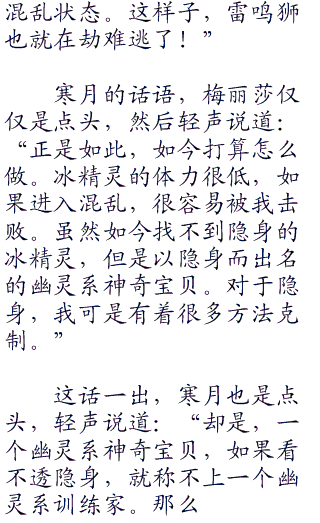 混乱状态。这样子，雷鸣狮
也就在劫难逃了！”
寒月的话语，梅丽莎仅
仅是点头，然后轻声说道：
“正是如此，如今打算怎么
做。冰精灵的体力很低，如
果进入混乱，很容易被我击
败。虽然如今找不到隐身的
冰精灵，但是以隐身而出名
的幽灵系神奇宝贝。对于隐
身，我可是有着很多方法克
制。”
这话一出，寒月也是点
头，轻声说道：“却是，一
个幽灵系神奇宝贝，如果看
不透隐身，就称不上一个幽
灵系训练家。那么